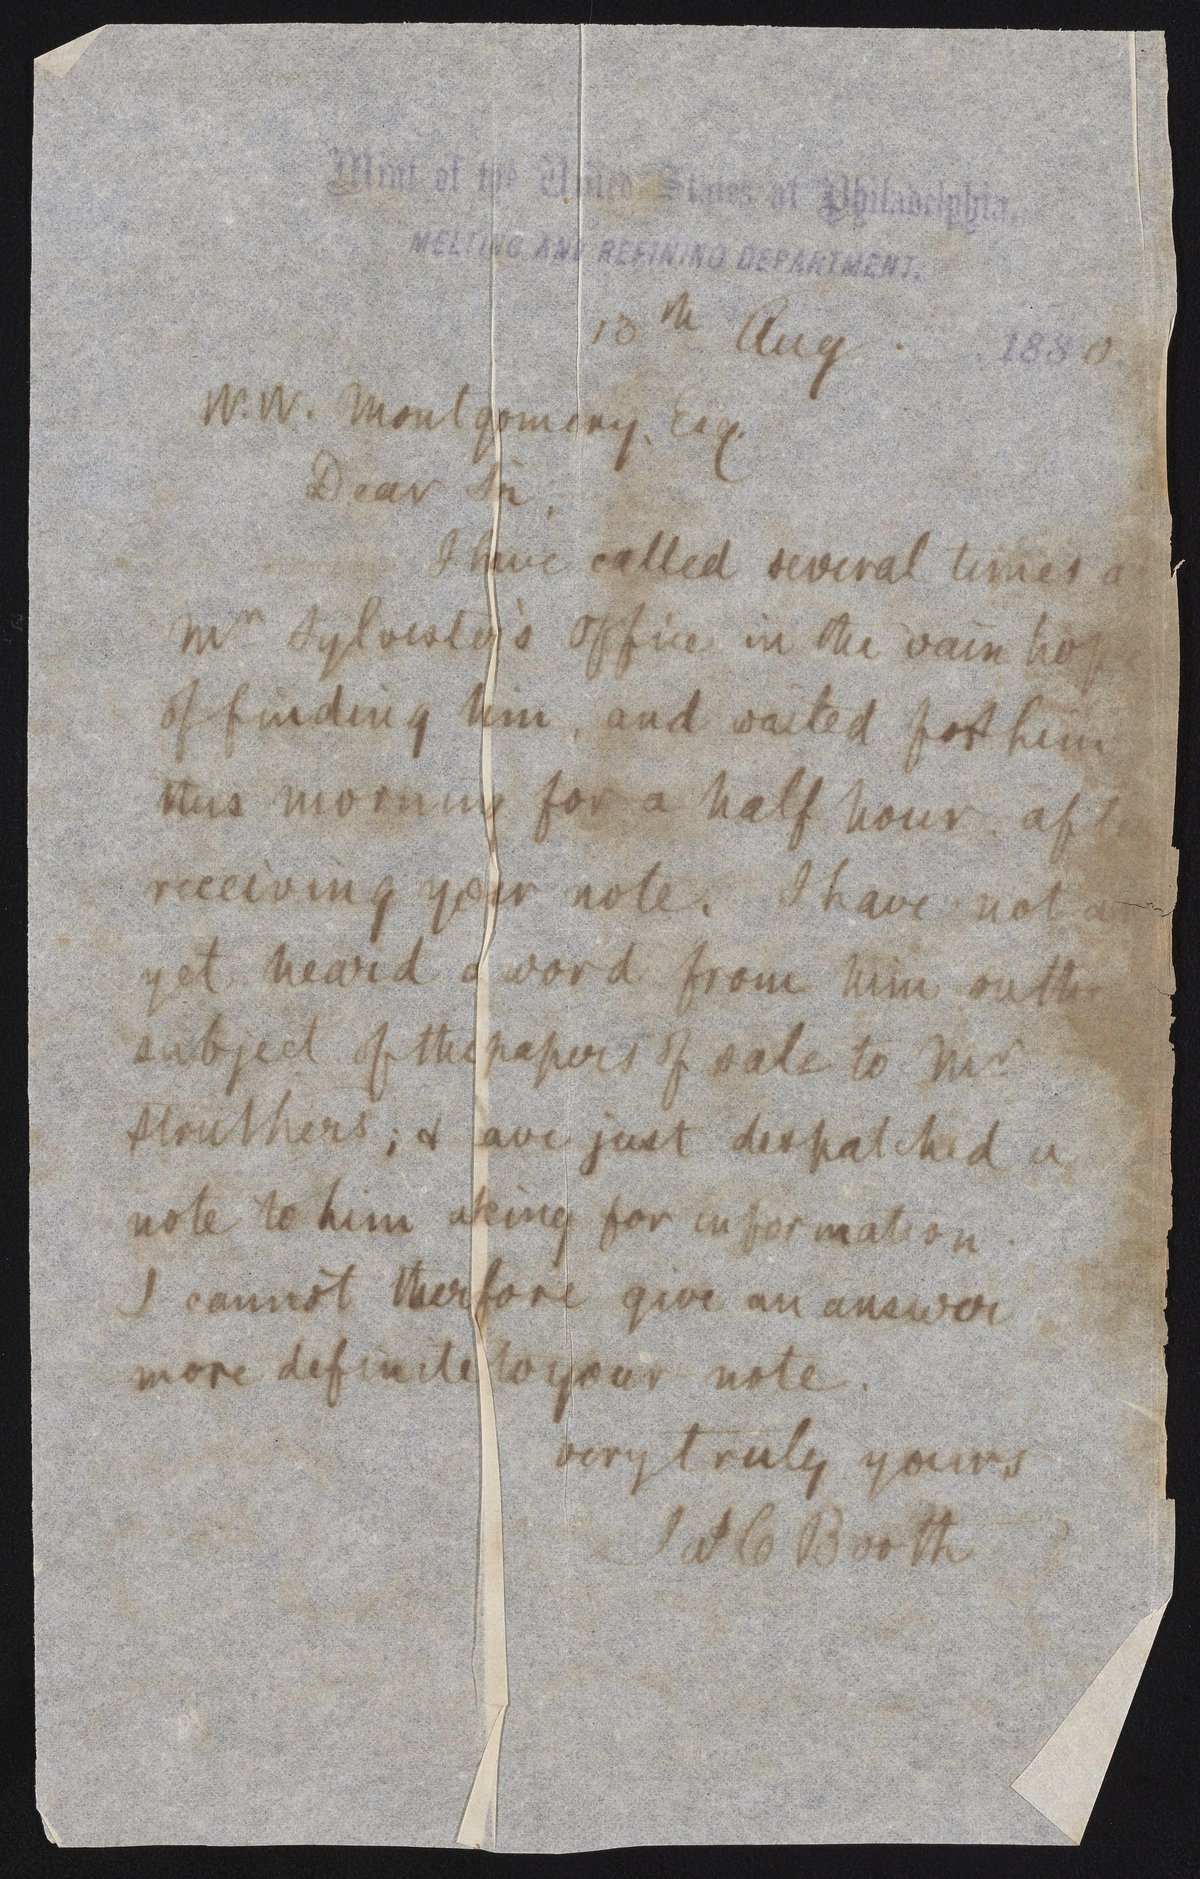 Mint of the United States at Philadelphia.
MELTING AND REFINING DEPARTMENT.
13th Aug. 1880
W. W. Montgomery, Esq.
Dear Sir,
I have called several times a
Mr Sylvester's office in the vain hope
of finding him, and waited for him
this morning for a half hour afte
receiving your note. I have not a
yet heard a word from him on the
subject of the papers of sale to Mr
Struthers; & ave just despatched a
note to him aking for information.
I cannot therfore give an answer
more definite to your note.
very truly yours
Jas C Booth